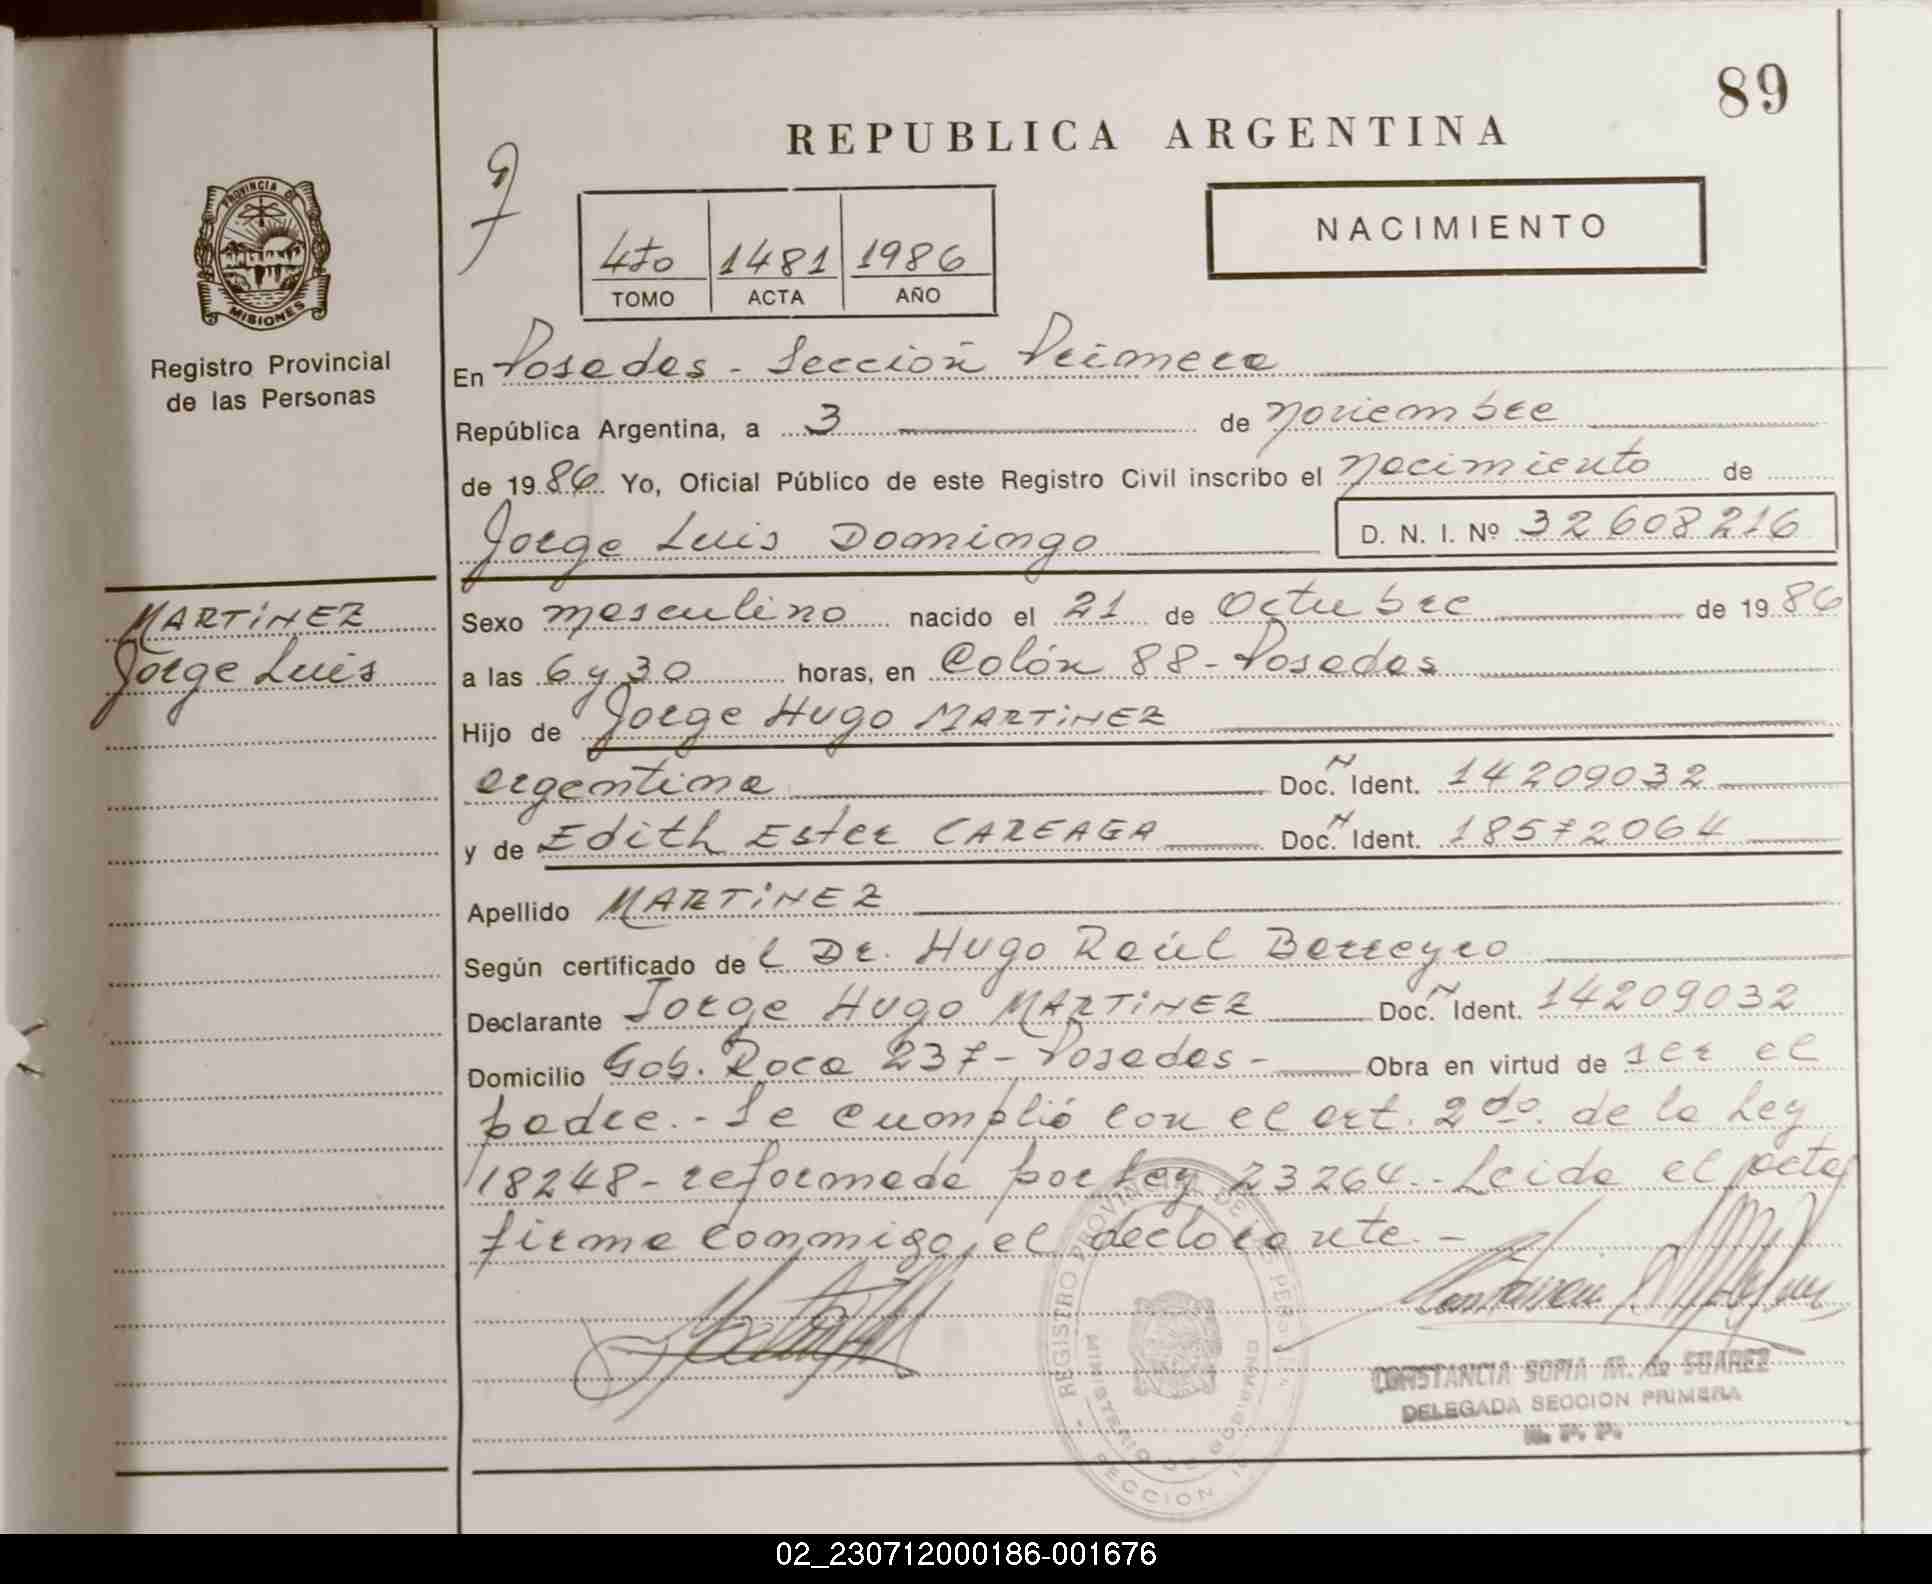 89
REPUBLICA ARGENTINA
NACIMIENTO
4to 1481 1986
TOMO ACTA AÑO
PROVINCIA DE
MISIONES
Registro Provincial
de las Personas
En Posadas - Sección Primera
República Argentina, a 3 de noviembre
de 1986 Yo, Oficial Público de este Registro Civil inscribo el nacimiento de
Jorge Luis Domingo D. N. I. Nº 32608216
MARTiNEZ
Jorge Luis
Sexo masculino nacido el 21 de Octubre de 1986
a las 6 y 30 horas, en Colón 88 - Posadas
Hijo de Jorge Hugo MARTiNEZ
argentina Doc. Ident. 14209032
y de Edith Ester CAREAGA Doc. Ident. 18572064
Apellido MARTiNEZ
Según certificado del Dr. Hugo Raúl Barreyro
Declarante Jorge Hugo MARTiNEZ Doc. Ident. 14209032
Domicilio Gob. Roca 237 - Posadas - Obra en virtud de ser el
padre. - Se cumplió con el art. 2do. de la Ley
18248 - reformada por Ley 23264. - Leida el acta
firma conmigo, el declarante. -
REGISTRO PROVINCIAL DE LAS PERSONAS
MINISTERIO DE GOBIERNO
SECCION
CONSTANCIA SOFIA M. de SUAREZ
DELEGADA SECCION PRIMERA
R. P. P.
02_230712000186-001676